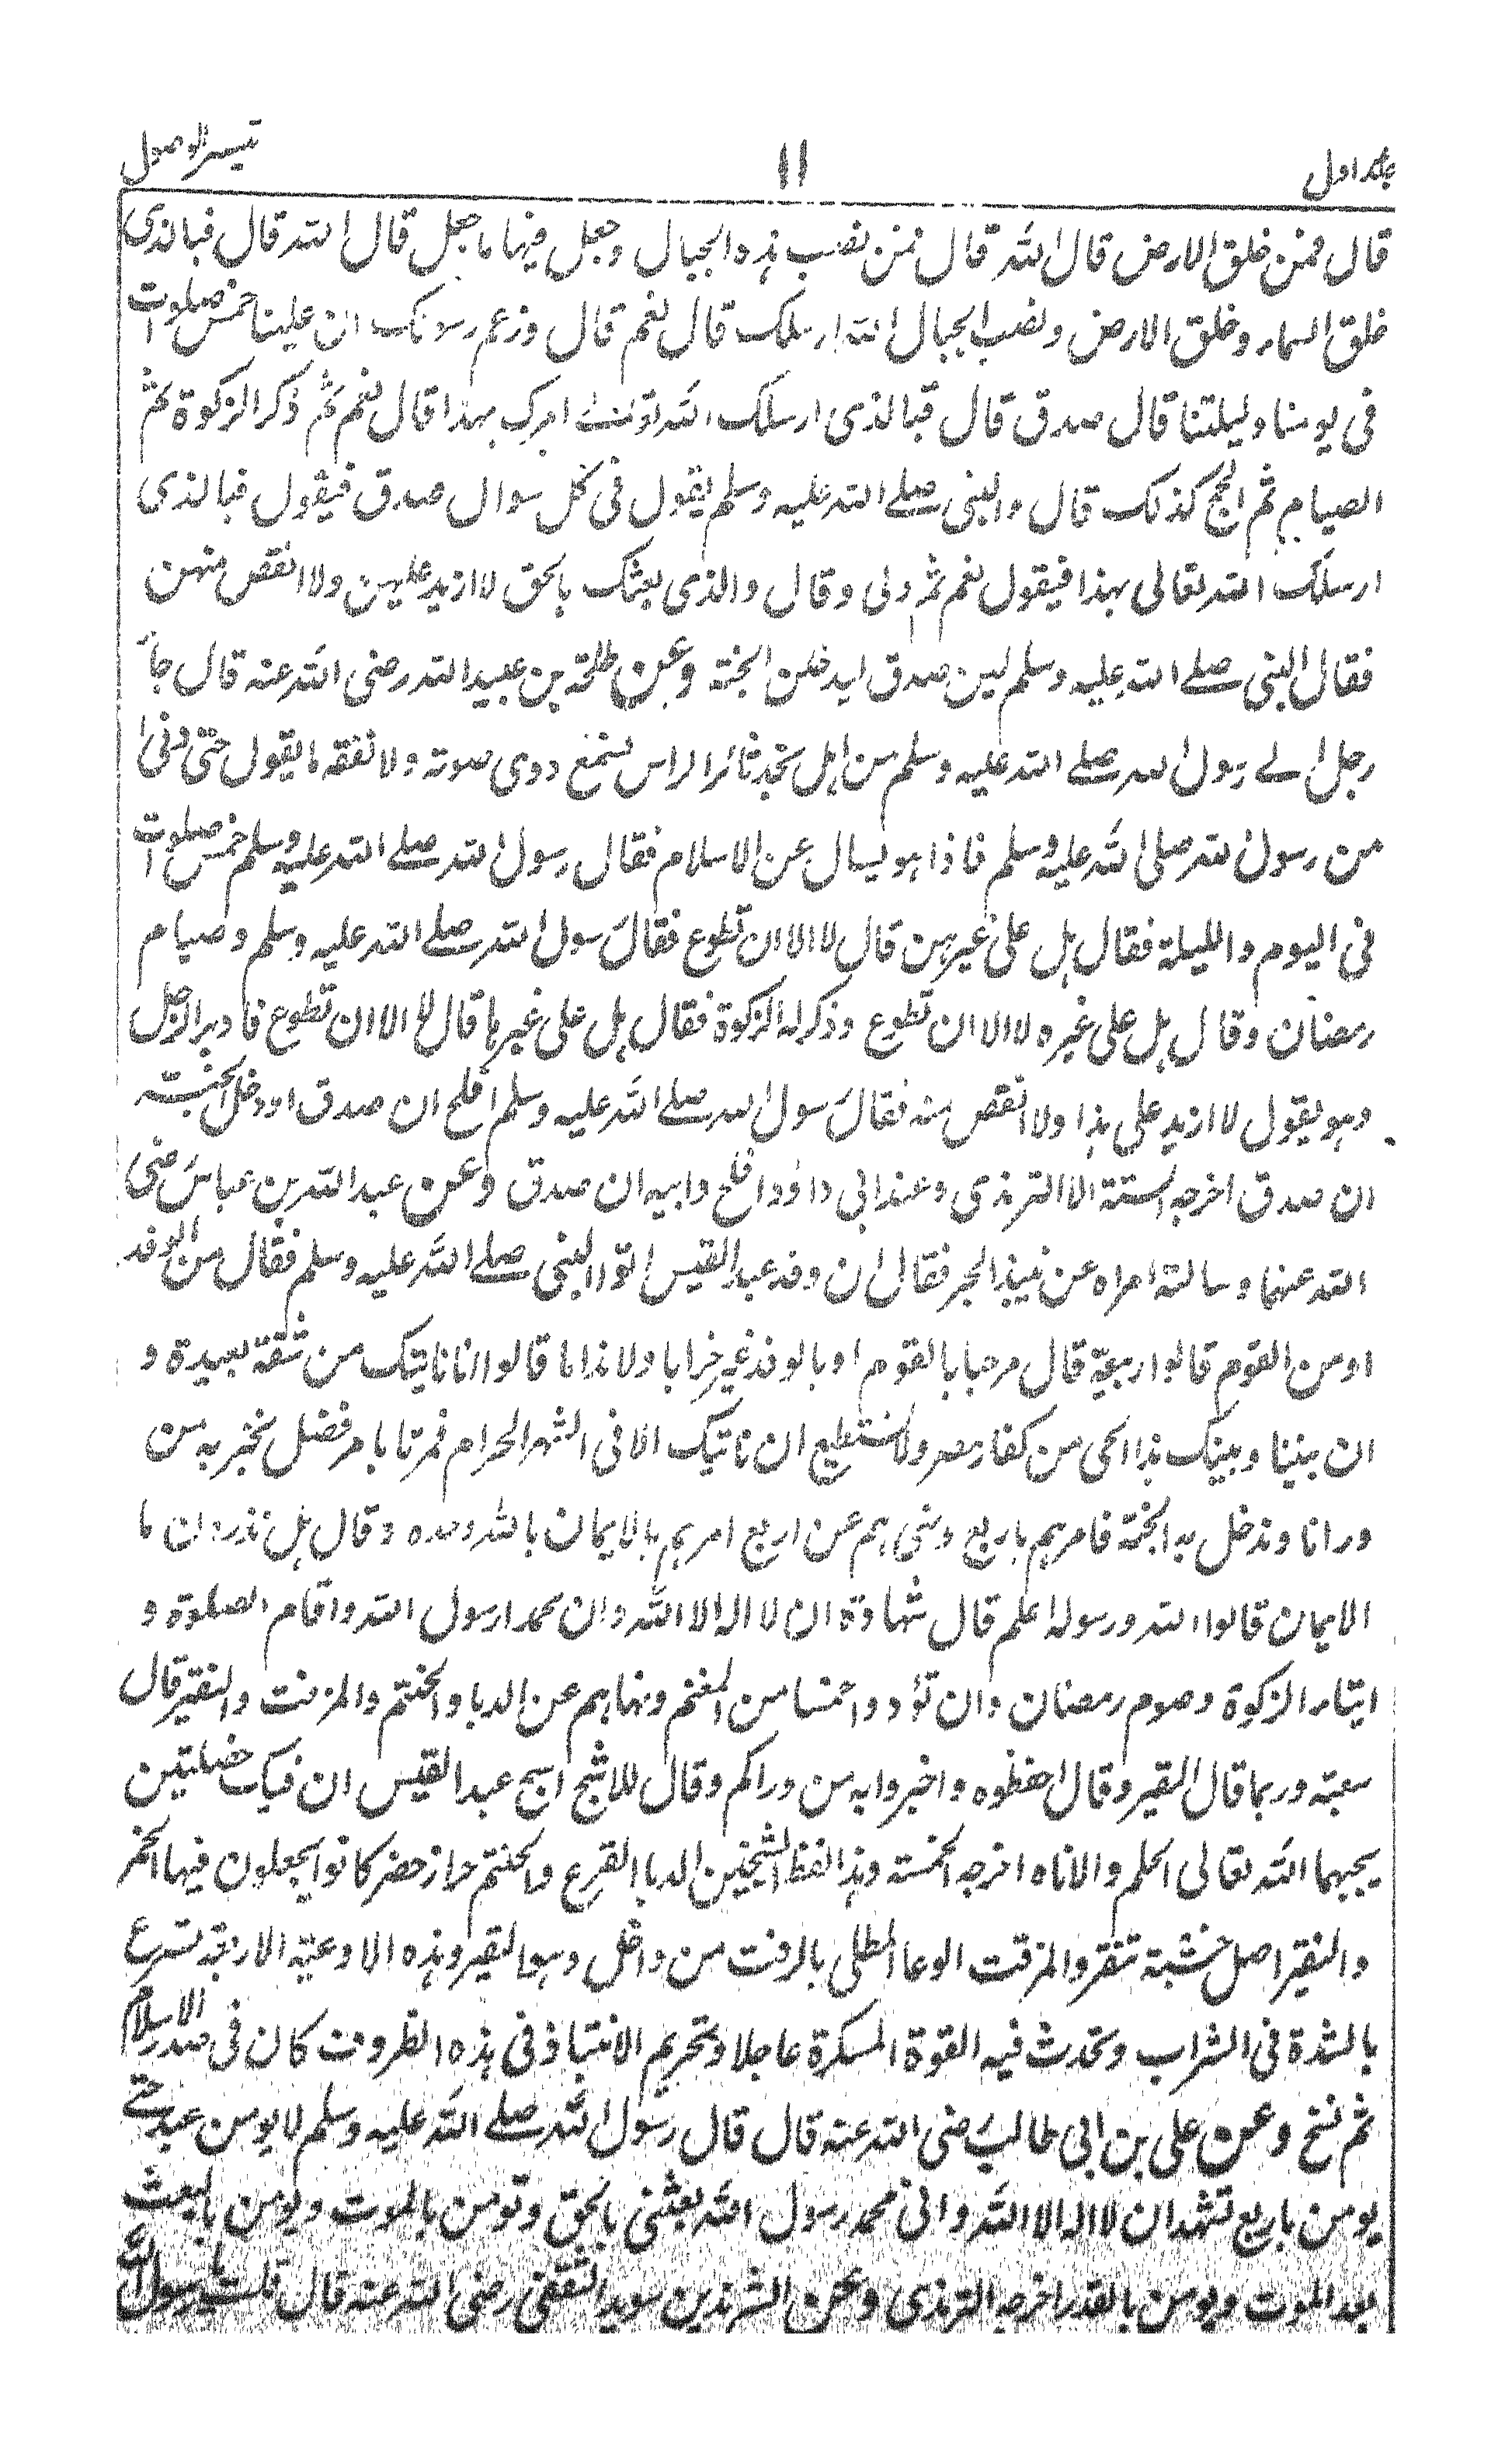 جلد اول ۱۱ تیسیر الوصول
قال فمن خلق الارض قال الله قال فمن نصب هذه الجبال وجعل فيها ما جعل قال الله قال فبالذي
خلق السماء وخلق الارض ونصب الجبال الله ارسلك قال نعم قال وزعم رسولك ان علينا خمس صلوات
في يومنا وليلتنا قال صدق قال فبالذي ارسلك الله امرك بهذا قال نعم ثم ذكر الزكوة ثم
الصيام ثم الحج كذلك قال والنبي صلے الله عليه وسلم يقول في كل سوال صدق فيقول فبالذي
ارسلك الله تعالى بهذا فيقول نعم ثم ولى وقال والذي بعثك بالحق لا ازيد عليهن ولا انقص منهن
فقال النبي صلے الله عليه وسلم لين صدق ليدخلن الجنة وعن طلحة بن عبيد الله رضي الله عنه قال جاء
رجل الے رسول الله صلے الله عليه وسلم من اهل نجد ثائر الراس نسمع دوى صوته ولا نفقه ما يقول حتى دنى
من رسول الله صلى الله عليه وسلم فاذا هو يسال عن الاسلام فقال رسول الله صلے الله عليه وسلم خمس صلوات
في اليوم والليلة فقال هل على غيرهن قال لا الا ان تطوع فقال رسول الله صلے الله عليه وسلم وصيام
رمضان وقال هل على غيره لا الا ان تطوع وذكر له الزكوة فقال هل على غيرها قال لا الا ان تطوع فادبر الرجل
وهو يقول لا ازيد على هذا ولا انقص منه فقال رسول الله صلے الله عليه وسلم افلح ان صدق او دخل الجنة
ان صدق اخرجه الستة الا الترمذي وعند ابي داؤد افلح وابيه ان صدق وعن عبد الله بن عباس رضي
الله عنهما وسالته امراه عن نبيذ الجر فقال ان وفد عبد القيس اتوا النبي صلے الله عليه وسلم فقال من الوفد
او من القوم قالوا ربيعة قال مرحبا بالقوم او بالوفد غير خزايا ولا ندامى قالوا انا ناتيك من شقة بعيدة و
ان بيننا وبينك هذا الحي من كفار مضر ولا نستطيع ان ناتيك الا في الشهر الحرام فمرنا بامر فصل نخبر به من
ورانا وندخل به الجنة فامرهم باربع ونهى هم عن اربع امرهم بالايمان بالله وحده وقال هل تدرون ما
الايمان قالوا الله ورسوله اعلم قال شهادة ان لا اله الا الله وان محمدا رسول الله واقام الصلوة و
ايتاء الزكوة وصوم رمضان وان تؤدوا خمسا من المغنم ونهاهم عن الدبا والحنتم والمزفت والنقير قال
شعبة وربما قال المقير وقال احفظوه واخبروا به من وراكم وقال للاشج اشج عبد القيس ان فيك خصلتين
يحبهما الله تعالى الحلم والاناه اخرجه الخمسة وهذا لفظ الشيخين الدبا القرع والحنتم جرار خضر كانوا يجعلون فيها الخمر
والنقير اصل خشبة تنقر والمزفت الوعا المطلى بالزفت من داخل وهو المقير وهذه الاوعية الاربعة تسرع
بالشدة في الشراب وتحدث فيه القوة المسكرة عاجلا وتحريم الانتباذ في هذه الظروف كان في صدر الاسلام
ثم نسخ وعن علي بن ابي طالب رضي الله عنه قال قال رسول الله صلے الله عليه وسلم لا يومن عبد حتے
يومن باربع تشهد ان لا اله الا الله واني محمد رسول الله بعثني بالحق وتومن بالموت ويومن بالبعث
بعد الموت ويومن بالقدر اخرجه الترمذي وعن الشريد بن سويد الثقفي رضي الله عنه قال قلت يا رسول الله